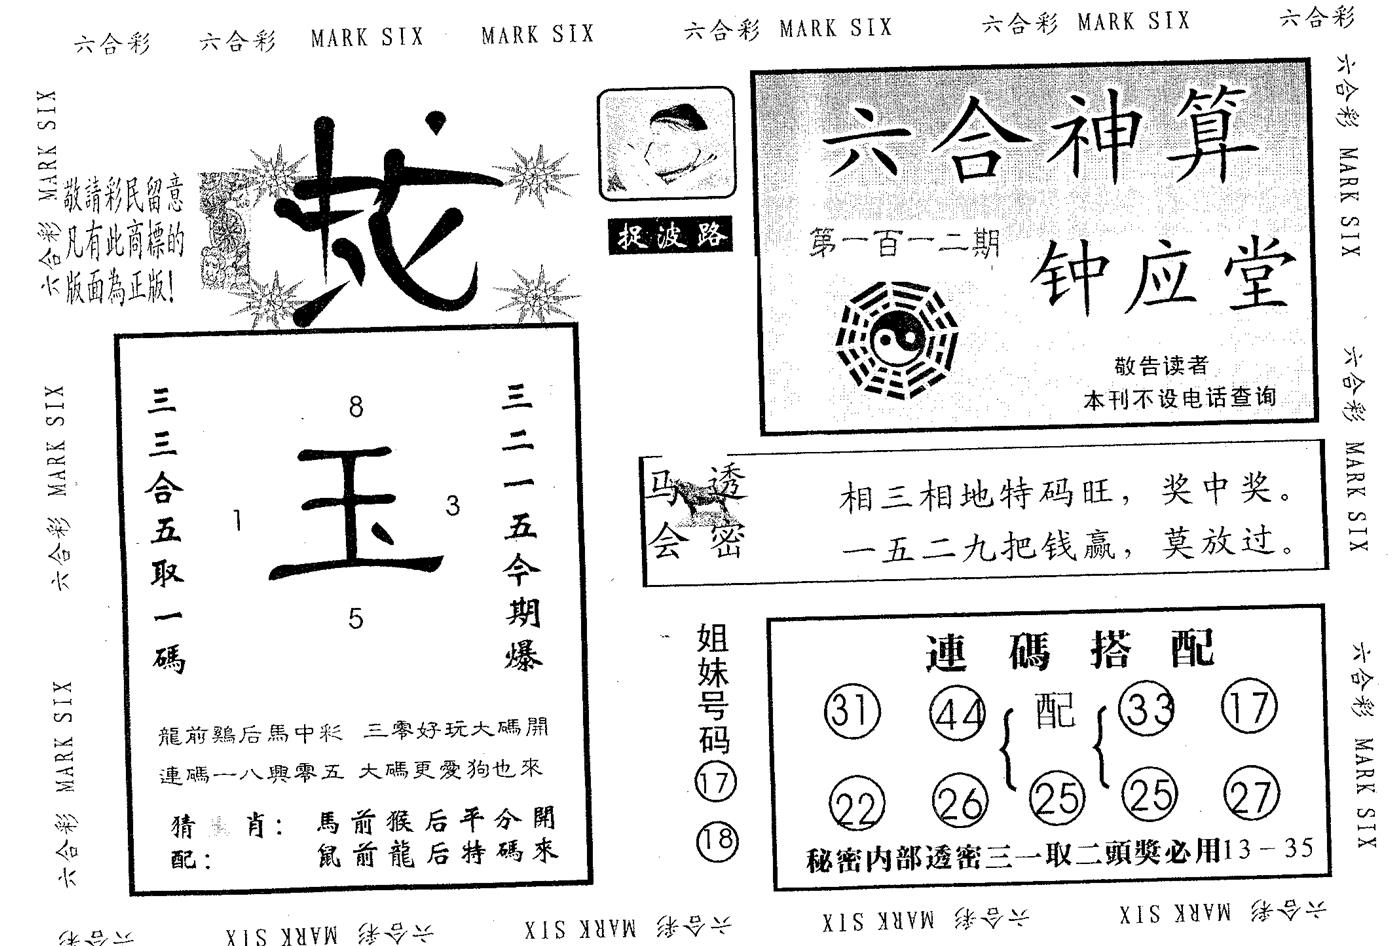 六合彩 六合彩 MARK SIX MARK SIX 六合彩 MARK SIX 六合彩 MARK SIX 六合彩
六合彩 MARK SIX
六合彩 MARK SIX
六合彩 MARK SIX
敬請彩民留意
凡有此商標的
版面為正版!
捉波路
六合神算
第一百一十二期
钟应堂
敬告读者
本刊不设电话查询
三三合五取一碼
8
1
玉
3
5
三二一五今期爆
龍前鷄后馬中彩 三零好玩大碼開
連碼一八與零五 大碼更愛狗也來
猜 肖: 馬前猴后平分開
配: 鼠前龍后特碼來
马会
透密
相三相地特码旺,奖中奖。
一五二九把钱赢,莫放过。
姐妹号码
17
18
連碼搭配
31 44 配 33 17
22 26 25 25 27
秘密内部透密三一取二頭獎必用13-35
六合彩 MARK SIX
六合彩 MARK SIX
六合彩 MARK SIX
六合彩 MARK SIX 六合彩 MARK SIX 六合彩 MARK SIX 六合彩 MARK SIX 六合彩